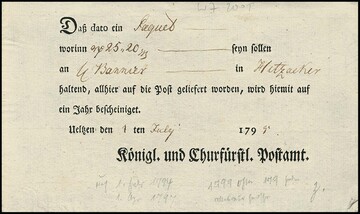 Daß dato ein Paquet
worinn 25. 20 seyn sollen
an Bannier in Hitzacker
haltend, allhier auf die Post geliefert worden, wird hiemit auf
ein Jahr bescheiniget.
Ueltzen den 1 ten July 179
Königl. und Churfürstl. Postamt.